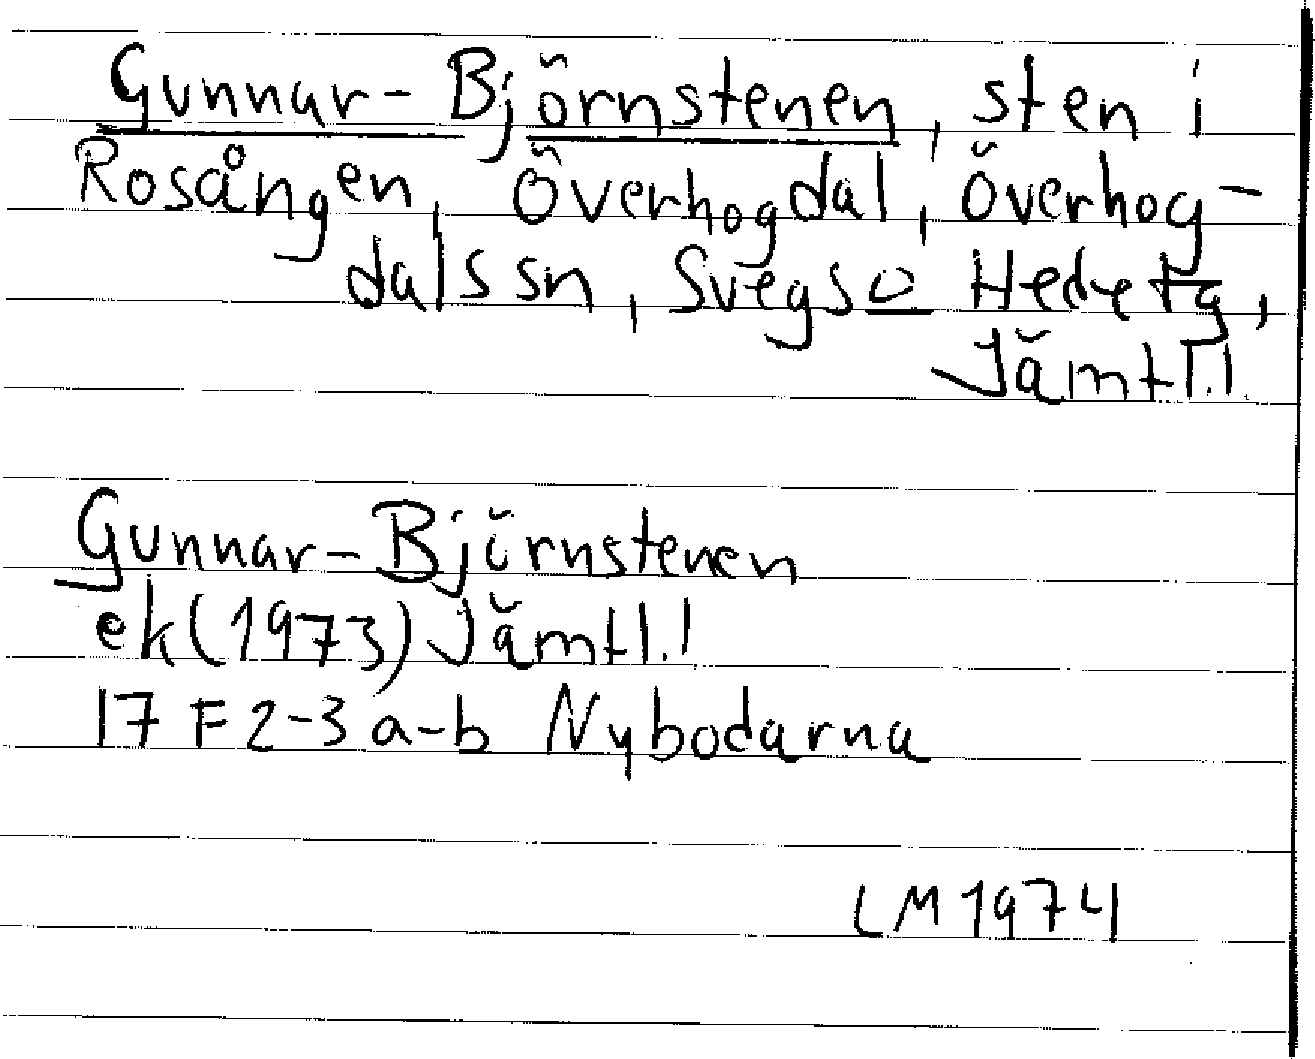 Gunnar-Björnstenen, sten i
Rosången, Överhogdal, Överhog-
dals sn, Svegs o Hede tg,
Jämtl.l.
Gunnar-Björnstenen
ek (1973) Jämtl.l
17 F 2-3 a-b Nybodarna
LM 1974